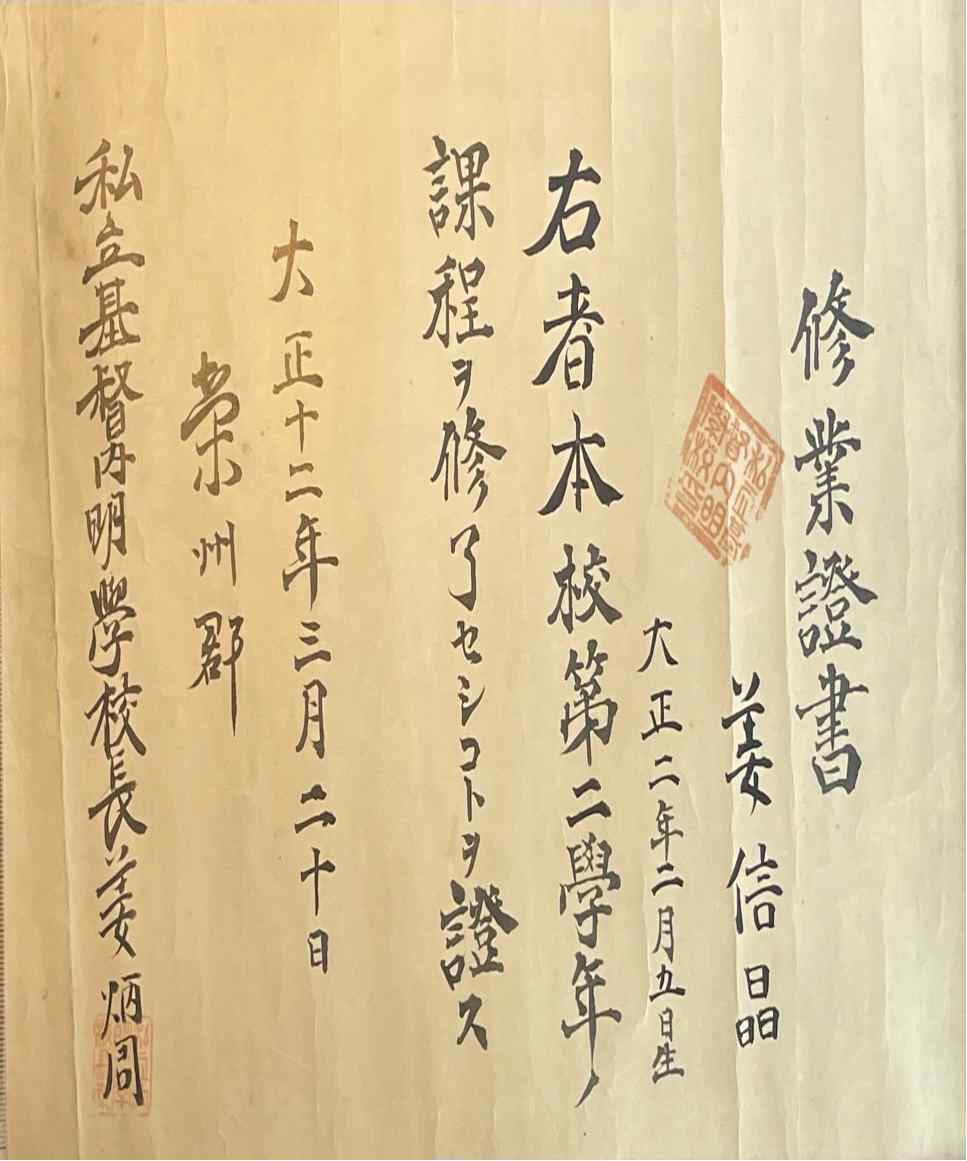 修業證書
姜信晶
大正二年二月九日生
右者本校第二學年ノ
課程ヲ修了セシコトヲ證ス
大正十二年三月二十日
榮州郡
私立基督內明學校長姜炳周